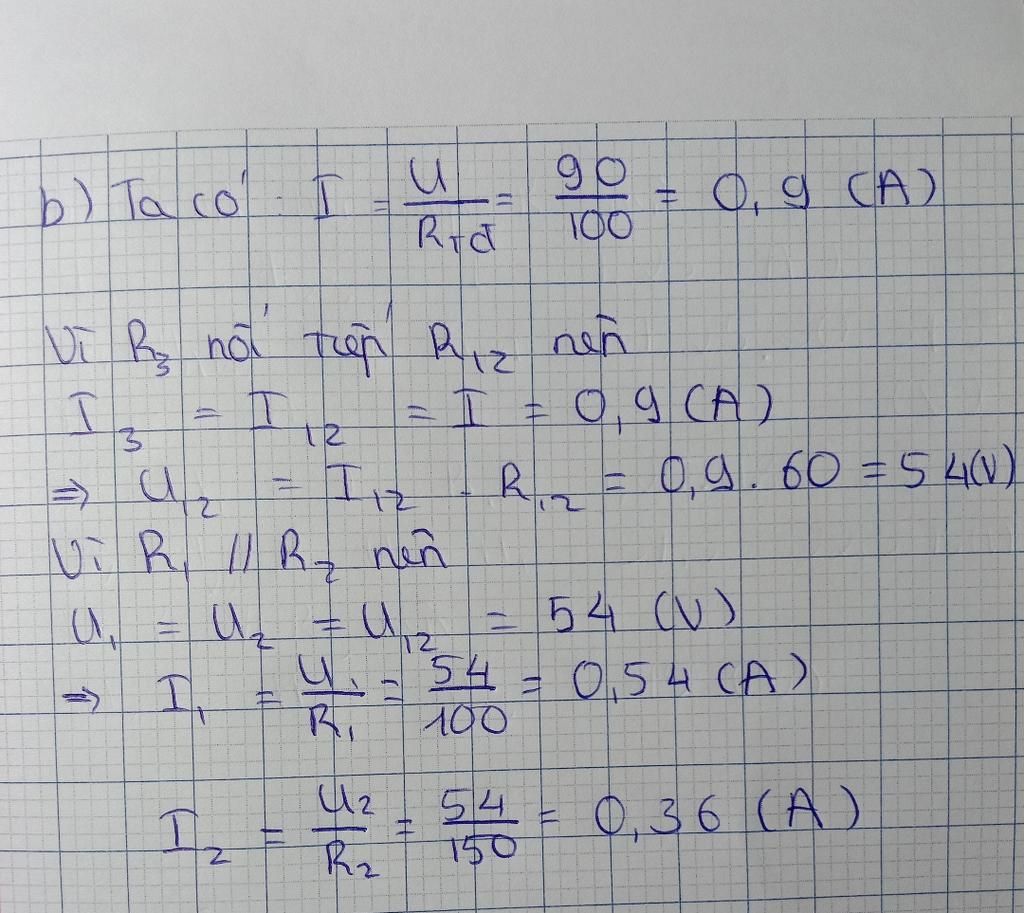 b) Ta có: I = U / Rtđ = 90 / 100 = 0,9 (A)
Vì R3 nối tiếp R12 nên
I3 = I12 = I = 0,9 (A)
=> U12 = I12 . R12 = 0,9 . 60 = 54(V)
Vì R1 // R2 nên
U1 = U2 = U12 = 54 (V)
=> I1 = U1 / R1 = 54 / 100 = 0,54 (A)
I2 = U2 / R2 = 54 / 150 = 0,36 (A)